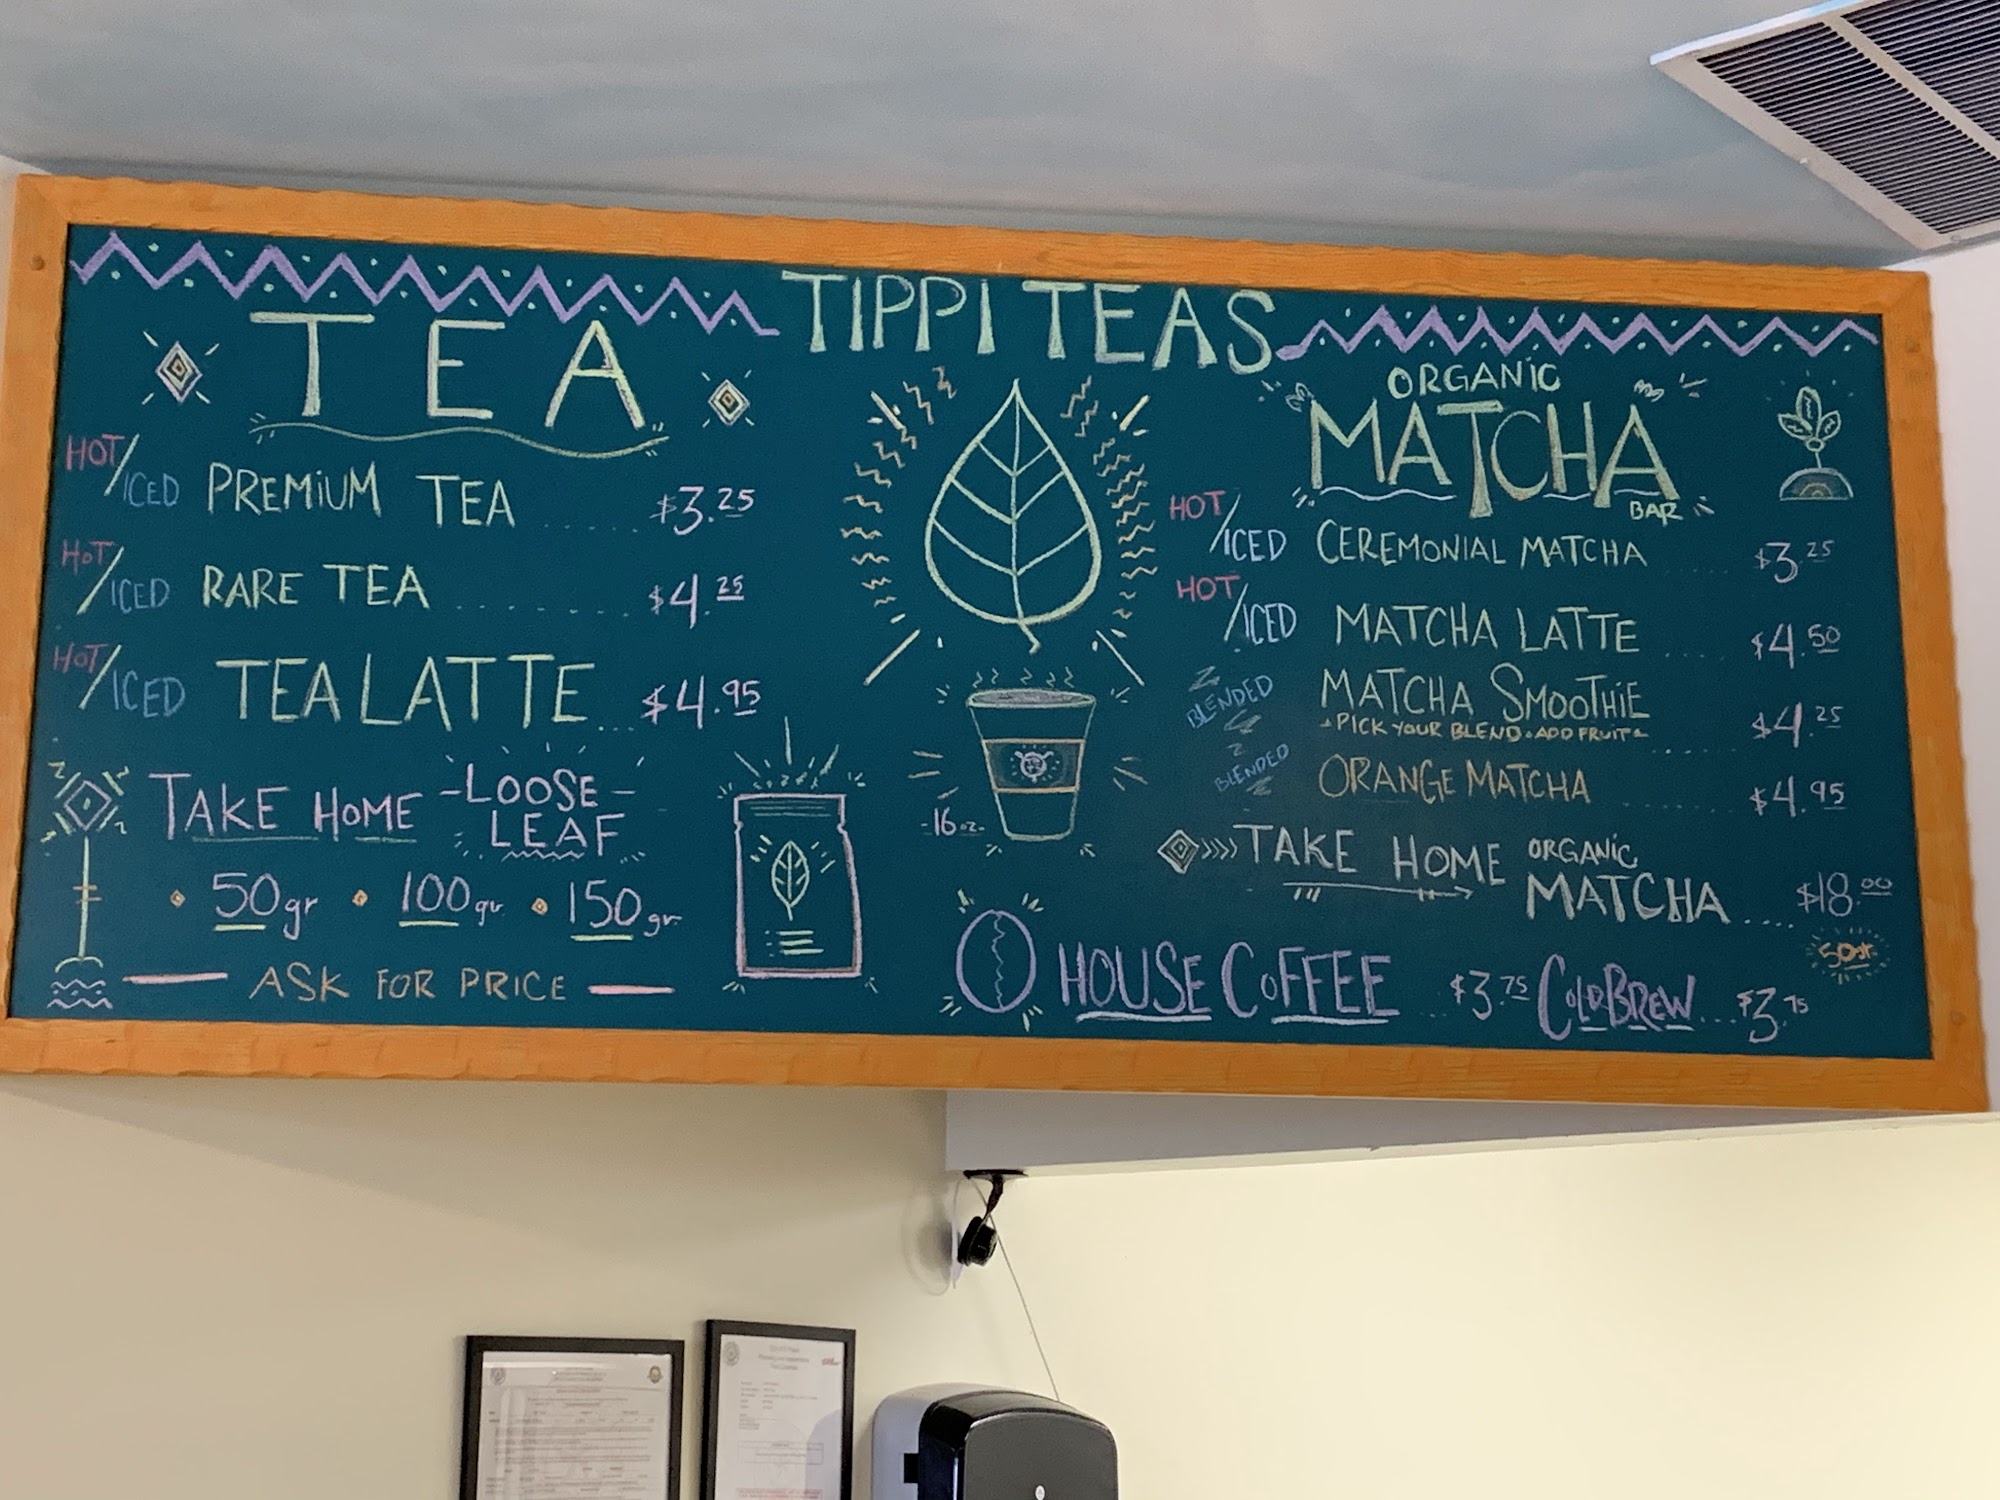 TIPPI TEAS
TEA
HOT/ICED PREMIUM TEA ...... $3.25
HOT/ICED RARE TEA ........ $4.25
HOT/ICED TEA LATTE ... $4.95
TAKE HOME -LOOSE-
LEAF
50gr • 100gr • 150gr.
ASK FOR PRICE
-16oz-
ORGANIC
MATCHA
BAR
HOT/ICED CEREMONIAL MATCHA ..... $3.25
HOT/ICED MATCHA LATTE ..... $4.50
BLENDED MATCHA SMOOTHIE
-PICK YOUR BLEND • ADD FRUIT- ..... $4.25
BLENDED ORANGE MATCHA ...... $4.95
TAKE HOME ORGANIC
MATCHA .... $18.00
50gr.
HOUSE COFFEE ... $3.75 COLD BREW ... $3.75